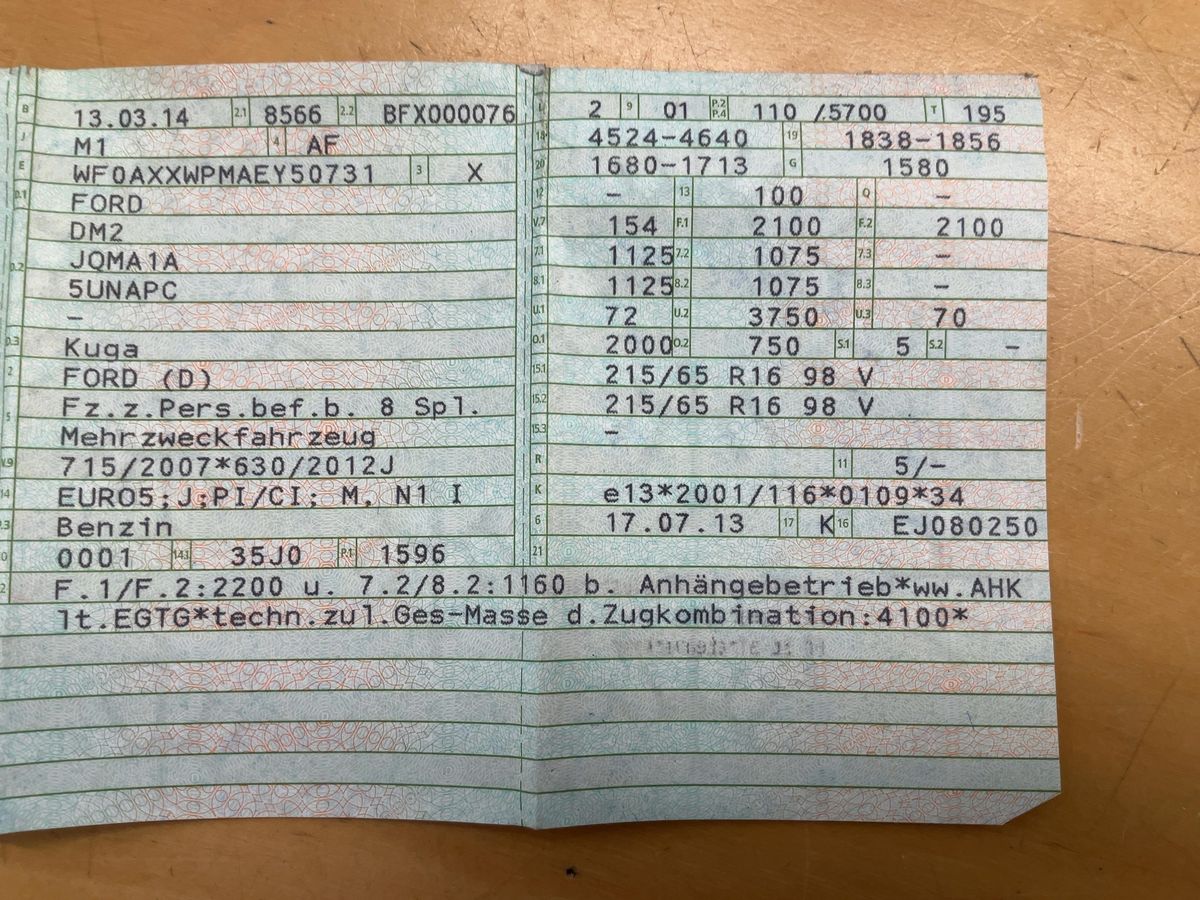 B 13.03.14 2.1 8566 2.2 BFX000076
J M1 4 AF
E WF0AXXWPMAEY50731 3 X
FORD
DM2
JQMA1A
5UNAPC
–
Kuga
2 FORD (D)
5 Fz.z.Pers.bef.b. 8 Spl.
Mehrzweckfahrzeug
V.9 715/2007*630/2012J
14 EURO5;J;PI/CI; M, N1 I
P.3 Benzin
10 0001 14.1 35J0 P.1 1596
L 2 9 01 P.2 P.4 110 /5700 T 195
18 4524-4640 19 1838-1856
20 1680-1713 G 1580
12 – 13 100 Q –
V.7 154 F.1 2100 F.2 2100
7.1 1125 7.2 1075 7.3 –
8.1 1125 8.2 1075 8.3 –
U.1 72 U.2 3750 U.3 70
O.1 2000 O.2 750 S.1 5 S.2 –
15.1 215/65 R16 98 V
15.2 215/65 R16 98 V
15.3 –
R 11 5/–
K e13*2001/116*0109*34
6 17.07.13 17 K 16 EJ080250
21
22 F.1/F.2:2200 u. 7.2/8.2:1160 b. Anhängebetrieb*ww.AHK
lt.EGTG*techn.zul.Ges-Masse d.Zugkombination:4100*